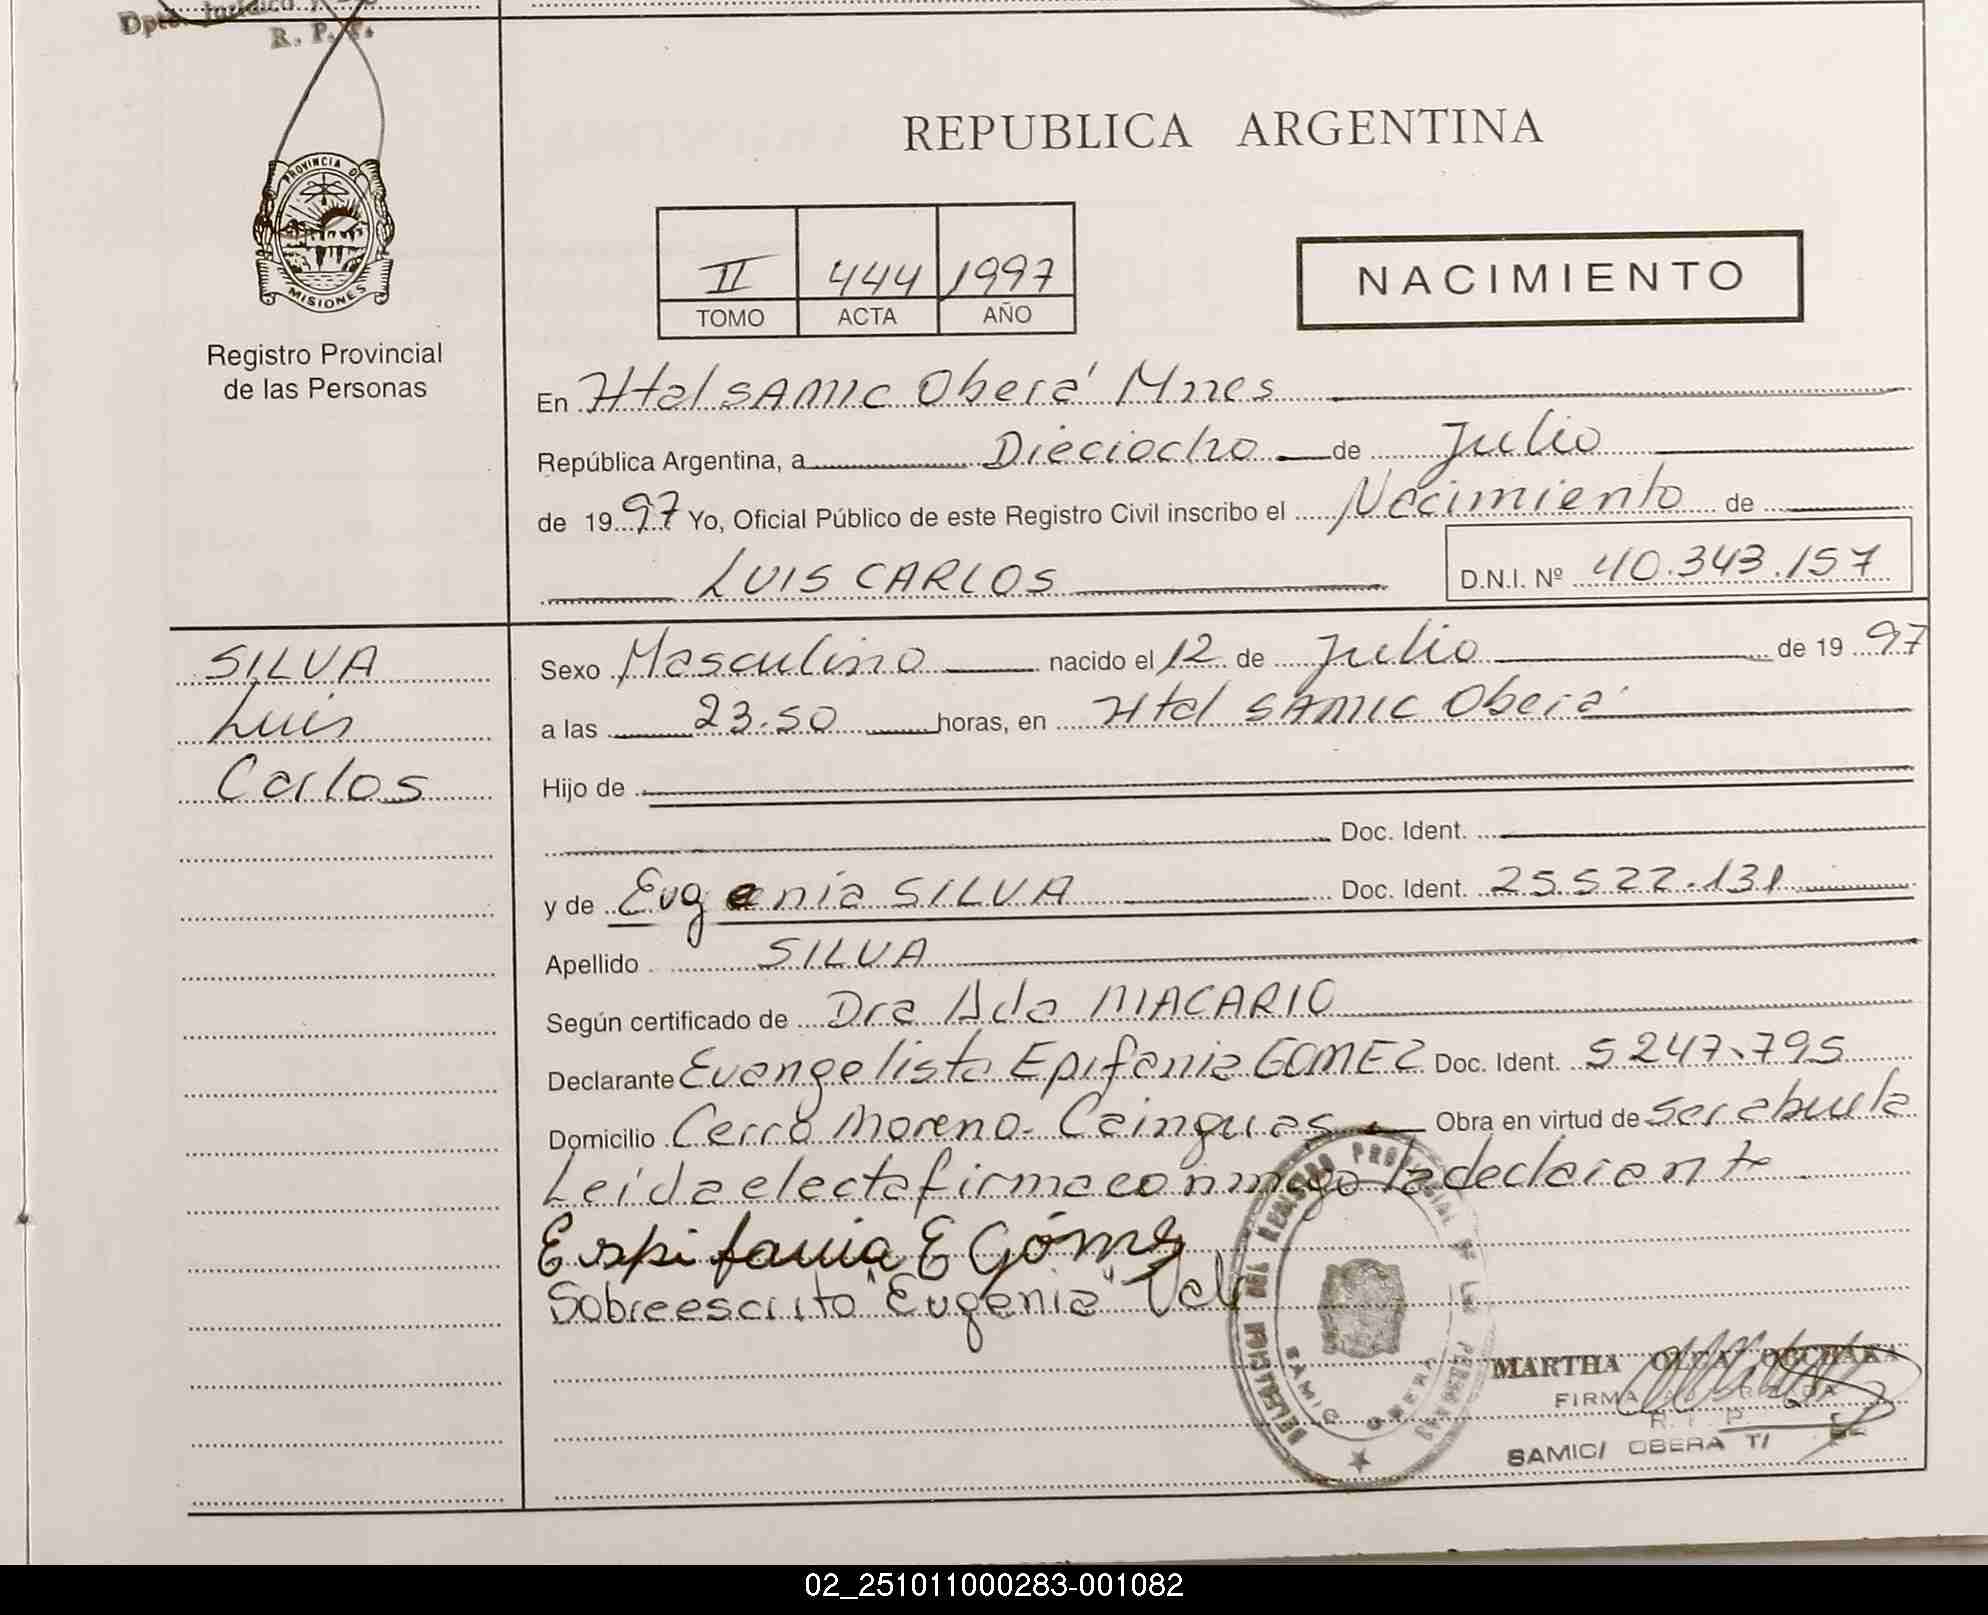 Dpto. Jurídico
R. P. P.
PROVINCIA DE
MISIONES
Registro Provincial
de las Personas
REPUBLICA ARGENTINA
II 444 1997
TOMO ACTA AÑO
NACIMIENTO
En Htal SAMIC Oberá Mnes
República Argentina, a Dieciocho de Julio
de 1997 Yo, Oficial Público de este Registro Civil inscribo el Nacimiento de
LUIS CARLOS D.N.I. Nº 40.343.157
SILVA
Luis
Carlos
Sexo Masculino nacido el 12 de Julio de 1997
a las 23.50 horas, en Htal SAMIC Oberá
Hijo de
Doc. Ident.
y de Eugenia SILVA Doc. Ident. 25.522.131
Apellido SILVA
Según certificado de Dra Ada MACARIO
Declarante Evangelista Epifania GOMEZ Doc. Ident. 5247.795
Domicilio Cerro Moreno - Cainguas Obra en virtud de ser abuela
Leída el acta firma conmigo la declarante
Espifania E Gómez
Sobreescrito "Eugenia" Vale
DELEGACION REGISTRO PROVINCIAL DE LAS PERSONAS
SAMIC OBERA
MARTHA OLGA
FIRMA AUTORIZADA
R. P. P.
SAMIC/ OBERA T/
02_251011000283-001082